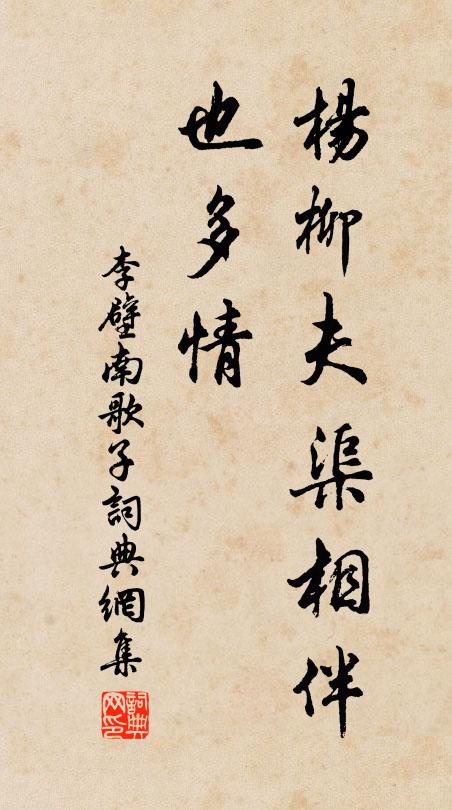 楊柳夫渠相伴
也多情
李壁南歌子詞典網集
詞典
网印